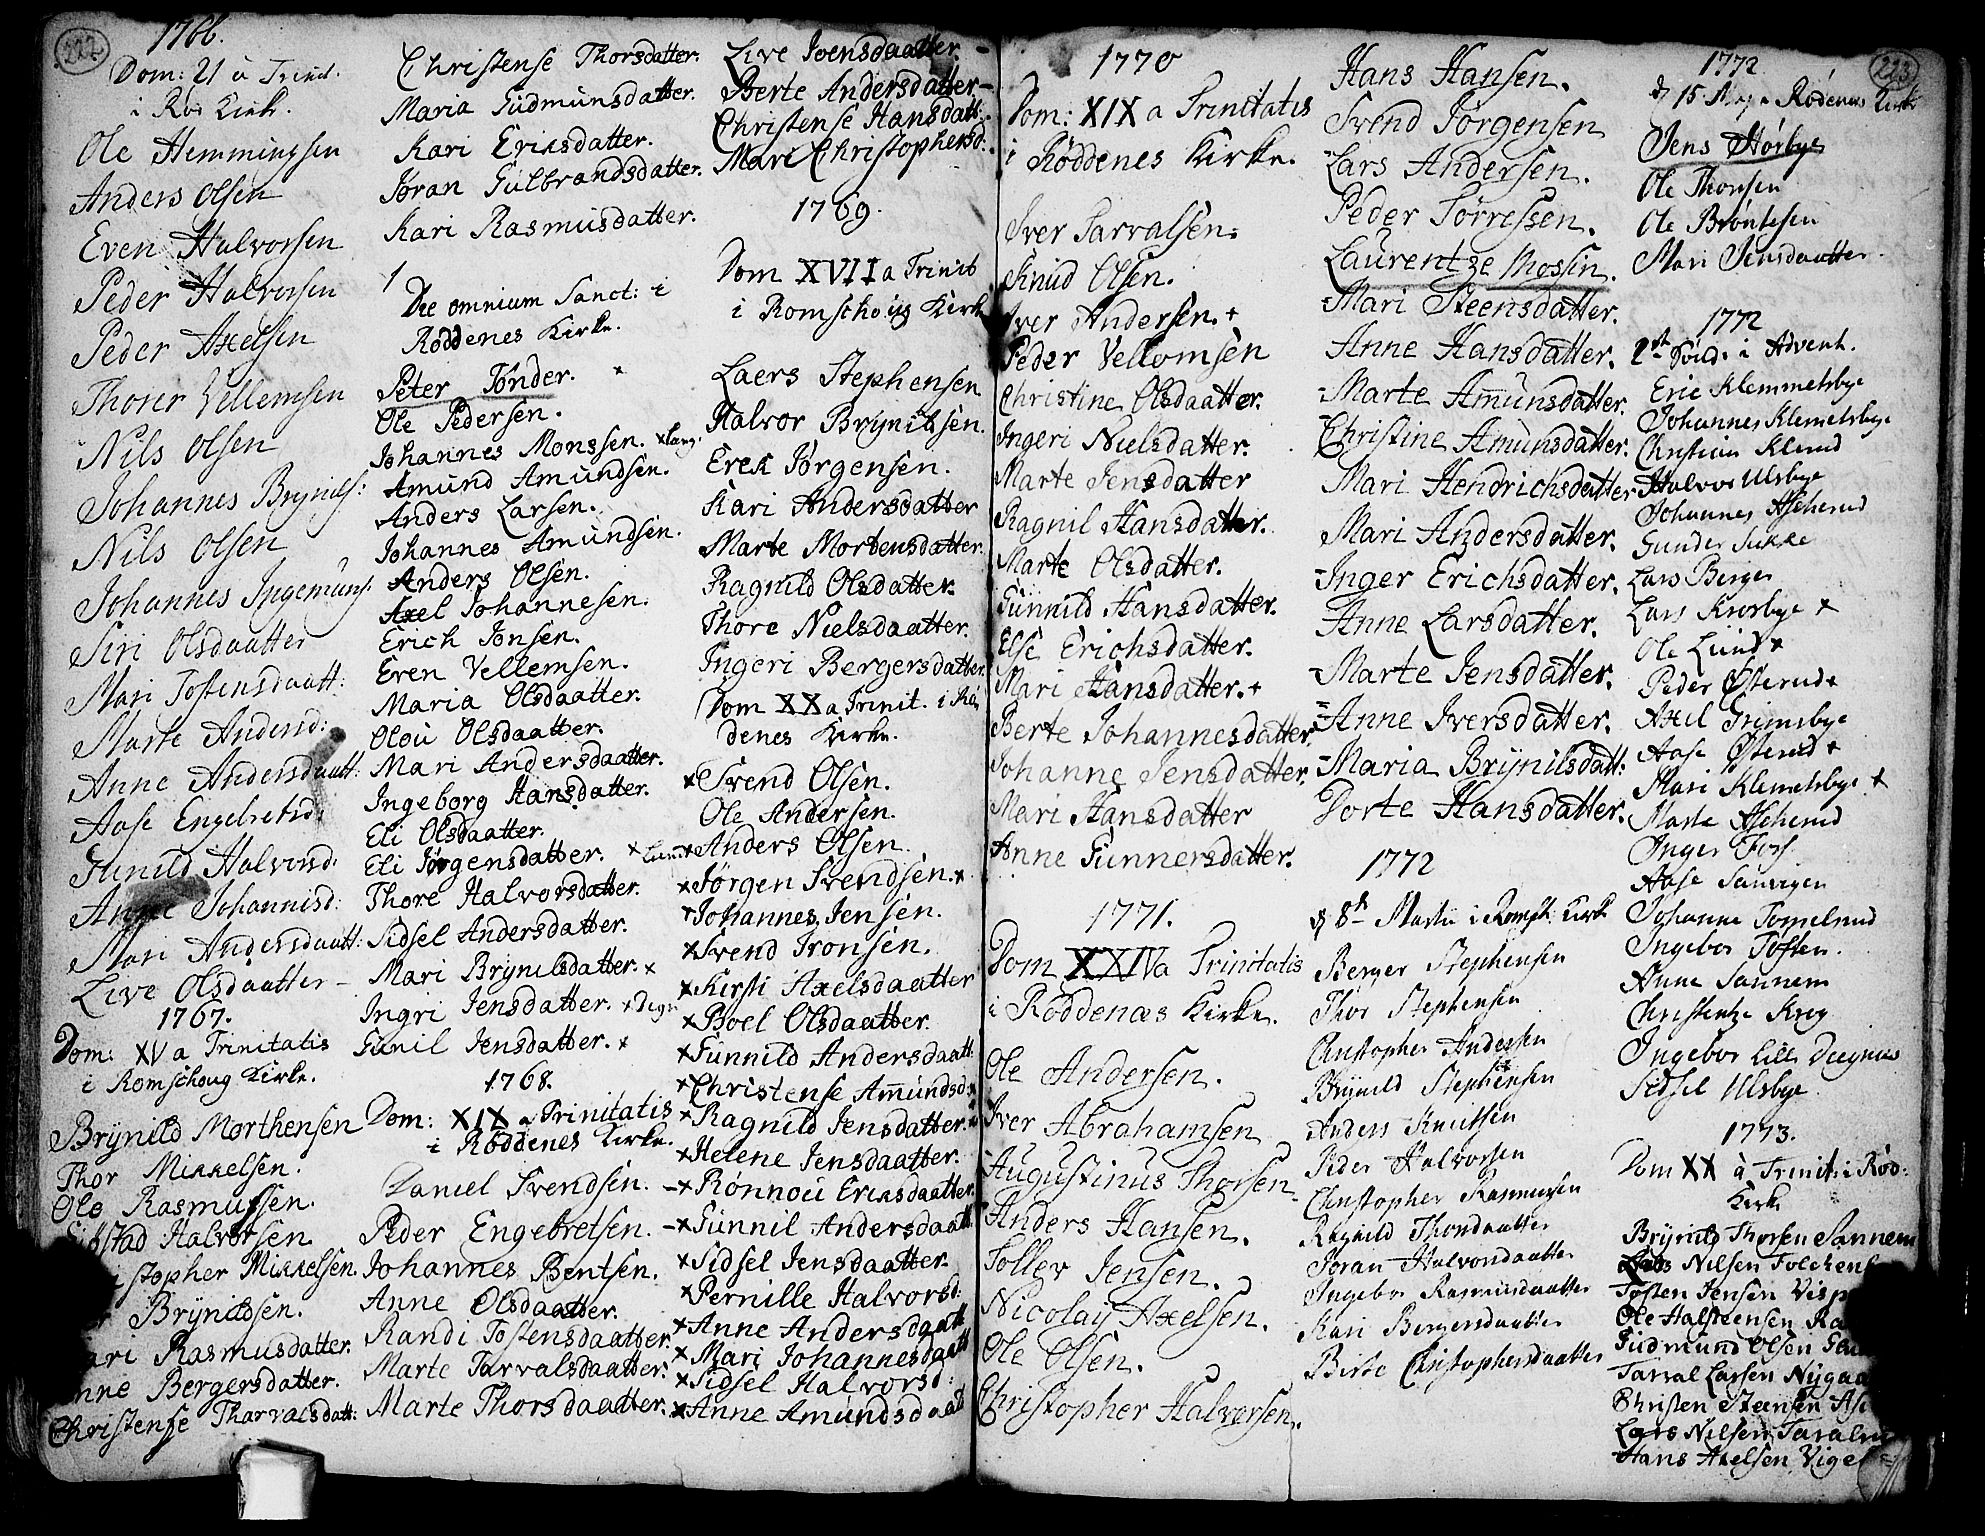 222.
1766.
Dom: 21 a Trinit.
i Rød Kirke.
Ole Hemmingsen
Anders Olsen
Even Halvorsen
Peder Halvorsen
Peder Axelsen
Thorer Vellemsen
Nils Olsen
Johannes Brynils:
Nils Olsen
Johannes Ingemuns:
Siri Olsdaatter
Mari Tostensdaatt:
Marte Andersd:
Anne Andersdaatt:
Aase Engebretsd:
Gunild Halvorsd:
Anne Johannisd:
Mari Andersdaatt:
Live Olsdaatter -
1767.
Dom: XV a Trinitatis
i Romschoug Kirke.
Brÿnild Morthensen
Thor Mikkelsen.
Ole Rasmussen.
Halvorsen
stopher Mikkelsen.
Brÿnildsen.
ari Rasmusdatter.
nne Bergersdatter.
Christense Tharvalsdatt:
Christense Thorsdatter.
Maria Gudmunsdatter.
Kari Eriksdatter.
Jøran Gulbrandsdatter.
Kari Rasmusdatter.
Die omnium Sanct: i
Røddenes Kirke.
Peter Tønder. x
Ole Pedersen.
Johannes Monssen. x Lang.
Amund Amundsen.
Anders Larsen.
Johannes Amundsen.
Anders Olsen.
Axel Johannesen.
Erich Jonsen.
Even Vellemsen.
Maria Olsdaatter.
Olou Olsdaatter.
Mari Andersdaatter.
Ingeborg Hansdatter.
Eli Olsdaatter.
Eli Jørgensdatter. x Lund
Thore Halvorsdatter.
Sidsel Andersdatter.
Mari Brynilsdatter. x
Ingri Jensdatter. x Degn
Gunil Jensdatter. x
1768.
Dom: XIX a Trinitatis
i Røddenes Kirke.
Daniel Svendsen.
Peder Engebretsen.
Johannes Bentsen.
Anne Olsdaatter.
Randi Tostensdaatter.
Marte Tarvalsdaatter.
Marte Thorsdaatter.
Live Joensdaatter. -
Berte Andersdatter -
Christense Hansdatt:
Mari Christophersd:
1769.
Dom XVII a Trinit
i Romschoug Kirk
Laers Stephensen
Halvor Brynildsen.
Erek Jørgensen.
Kari Andersdatter
Marte Mortensdatter.
Ragnild Olsdatter.
Thore Nielsdaatter.
Ingeri Bergersdatter
Dom XX a Trinit. i Rø
denes Kirke.
x Svend Olsen.
Ole Andersen.
x Anders Olsen.
x Jørgen Svendsen. x
x Johannes Jensen.
x Svend Tronsen.
x Kirsti Axelsdaatter
x Boel Olsdaatter.
x Gunnild Andersdaatt.
x Christense Amundsd:
x Ragnild Jensdatter.
x Helene Jensdaatter.
-x Rønnou Eriksdaatter.
-x Gunnil Andersdaatt.
x Sidsel Jensdaatter.
x Pernille Halvorsd:
x Anne Andersdaatt
x Mari Johannesdaatt
x Sidsel Halvorsd:
x Anne Amundsdaatt
223.
1770
Dom: XIX a Trinitatis
i Røddenes Kirke.
Iver Tarvalsen.
Knud Olsen.
Iver Andersen. +
Peder Vellomsen
Christine Olsdaatter.
Ingeri Nielsdatter.
Marte Jensdatter
Ragnil Hansdatter.
Marte Olsdatter.
Gunnild Hansdatter.
Else Erichsdatter.
Mari Hansdatter. +
Berte Johannesdatter.
Johanne Jensdatter.
Mari Hansdatter
Anne Gunnersdatter.
1771.
Dom XXIV a Trinitatis
i Røddenæs Kirke.
Ole Andersen.
Iver Abrahamsen
Augustinus Thorsen.
Anders Hansen.
Toller Jensen.
Nicolaÿ Axelsen.
Ole Olsen.
Christopher Halvorsen.
Hans Hansen.
Svend Jørgensen
Lars Andersen.
Peder Sørressen.
Laurentze Mossin.
Mari Steensdatter.
Anne Hansdatter.
Marte Amunsdatter.
Christine Amunsdatter.
Mari Hendrichsdatter
Mari Andersdatter.
Inger Erichsdatter.
Anne Larsdatter.
Marte Jensdatter.
Anne Iversdatter.
Maria Brÿnilsdatt:
Dorte Hansdatter.
1772
d 8de Martii i Romsk: Kirke
Berger Stephensen
Thor Stephensen
Christopher Andersen
Brynild Stephensen
Anders Knutsen
Peder Halvorsen
Christopher Rasmusen
Ragnild Thorsdaatter
Jøran Halvorsdaatter
Ingebor Rasmusdaatter
Kari Bergersdaatter
Birte Christophersdaatter
1772
d 15 Mayi Rødenes Kirke
Jens Hørbye
Ole Thorsen
Ole Brøntesen
Mari Jensdaatter.
1772
1st Sønd: i Advent.
Eric Klemmetsbye
Johannes Klemetsbye
Christian Klerud
Halvor Ulsbye
Johannes Ascherud
Gunder Sukke
Lars Berger
Lars Krosbye x
Ole Lund x
Peder Østerud x
Axel Grimsbye
Aase Østerud x
Mari Klemetsbye x
Marte Ascherud
Inger Fors
Aase Sanvigen
Johanne Tomelrud
Ingebor Toften.
Anne Sannem
Christentze Krog
Ingebor Lille Degnæs
Sidsel Ulsbye
1773.
Dom XX a Trinit: i Rød:
Kirke
Brÿnild Thorsen Sannem
Lars Nilsen Folchen
Tosten Jensen Visp
Ole Halsteensen Ra
Gudmund Olsen
Tarral Larsen Nÿgaa
Christen Steensen
Lars Nilsen Taraln
Hans Axelsen Vige